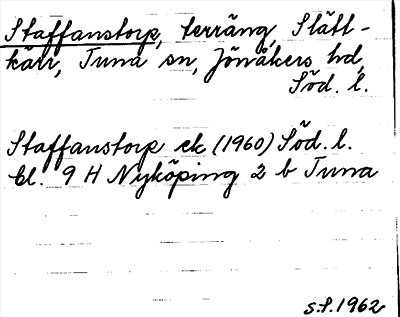 Staffanstorp, terräng, Slätt-
kärr, Tuna sn, Jönåkers hd,
Söd. l.
Staffanstorp ek (1960) Söd. l.
bl. 9 H Nyköping 2 b Tuna
S.P. 1962